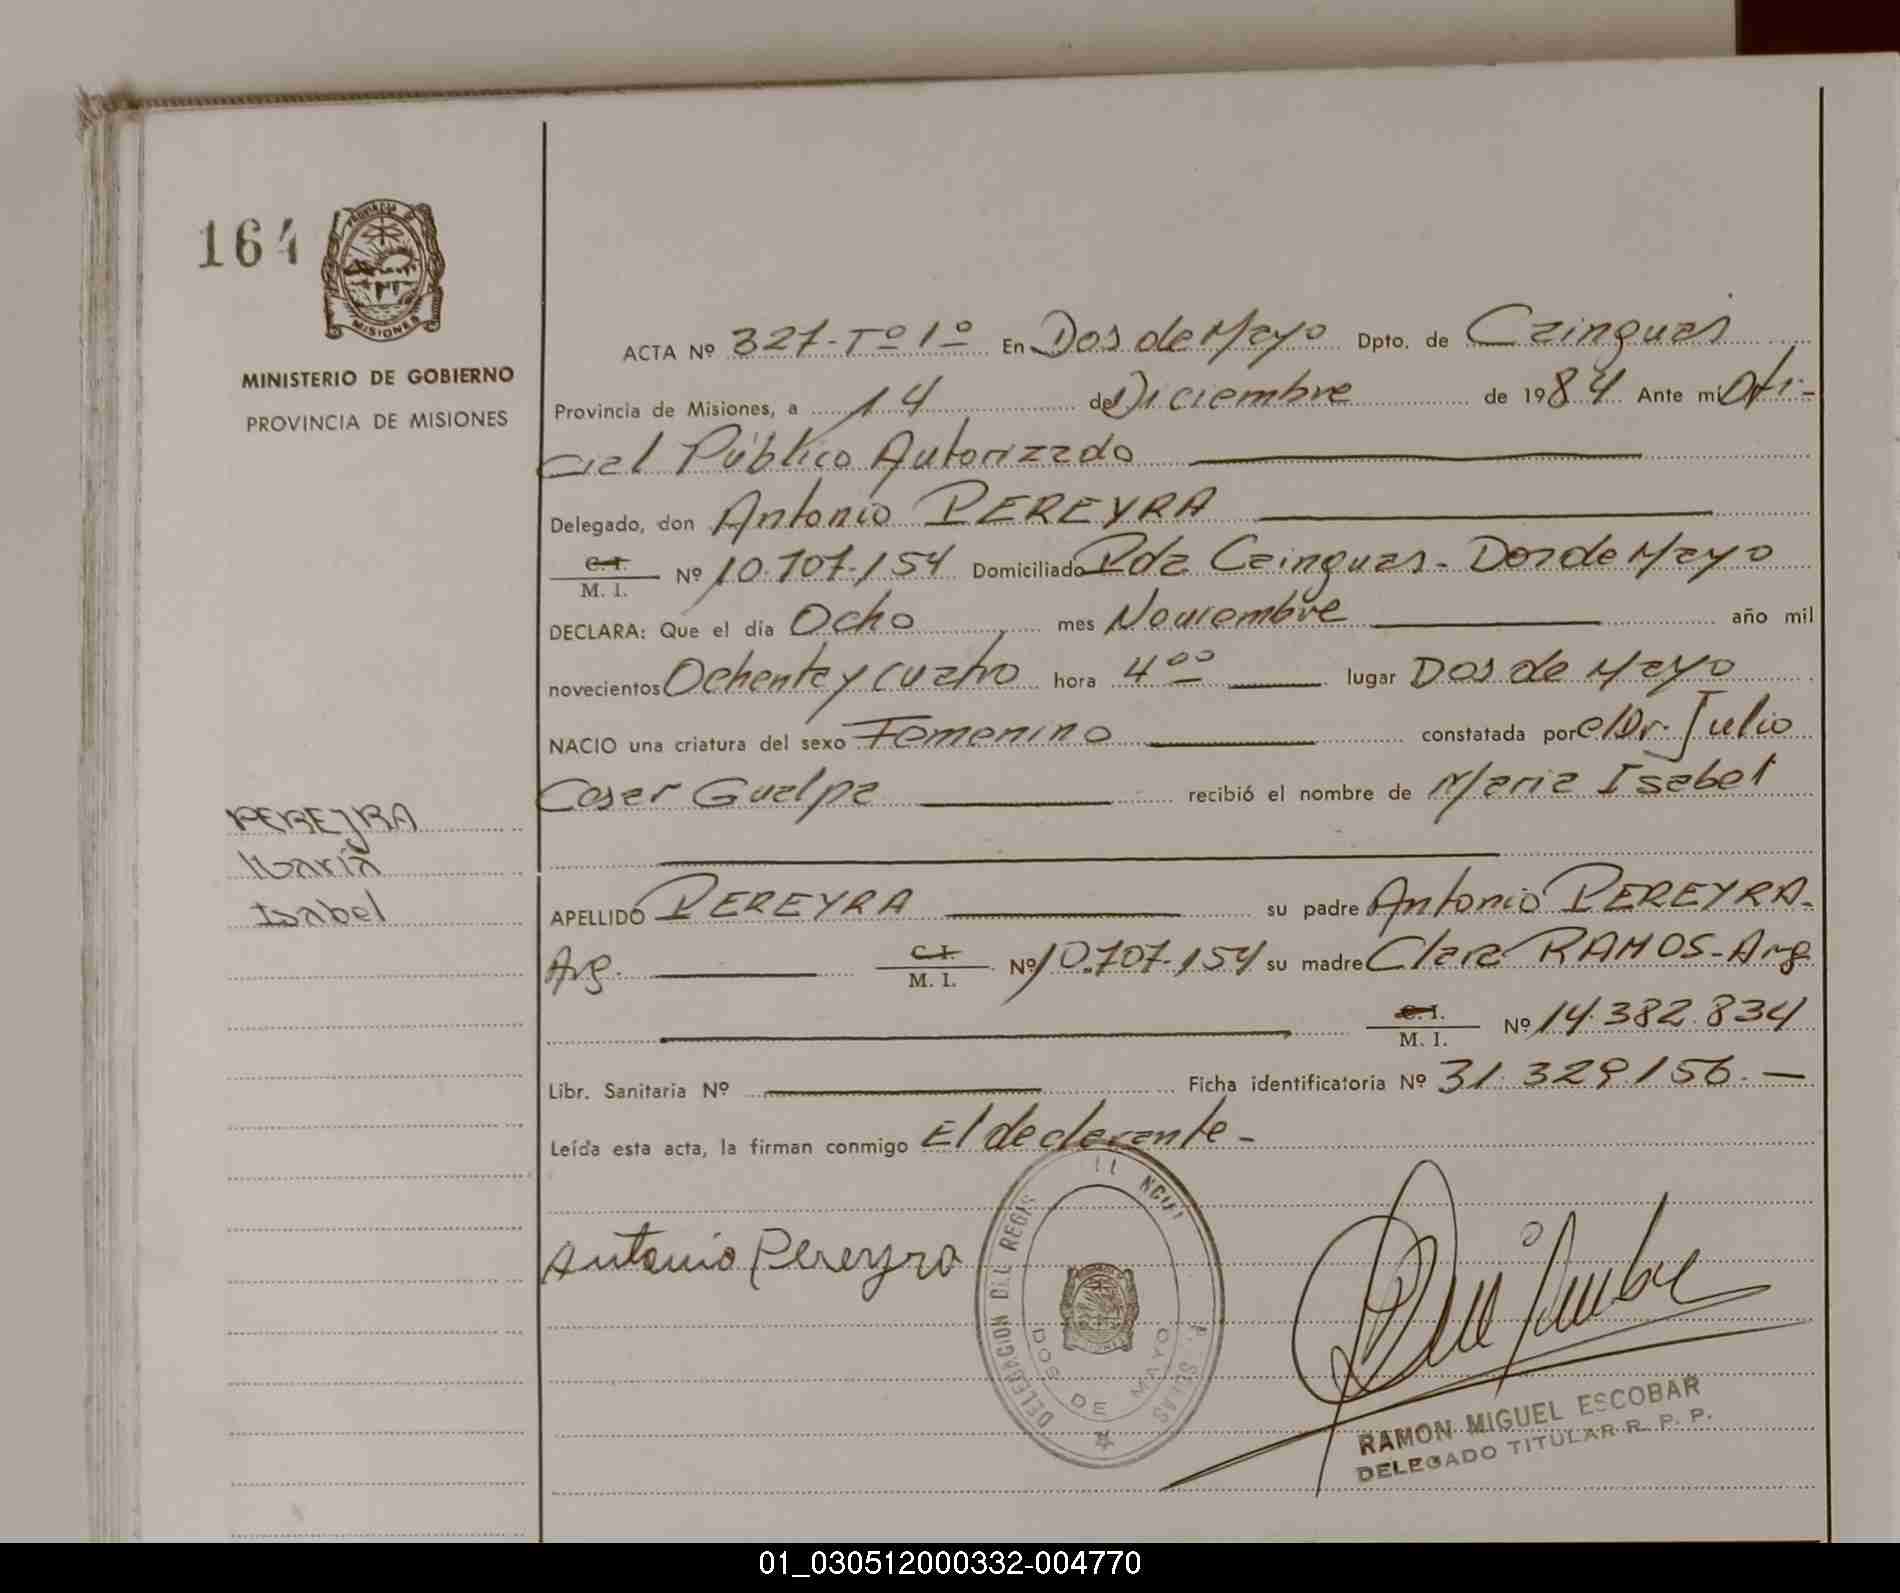 164
PROVINCIA DE
MISIONES
MINISTERIO DE GOBIERNO
PROVINCIA DE MISIONES
PEREYRA
María
Isabel
ACTA Nº 327-Tº 1º En Dos de Mayo Dpto. de Cainguas
Provincia de Misiones, a 14 de Diciembre de 1984 Ante mi Ofi-
cial Público Autorizado
Delegado, don Antonio PEREYRA
C.I.
M. I. Nº 10.707.154 Domiciliado Pda Cainguas - Dos de Mayo
DECLARA: Que el día Ocho mes Noviembre año mil
novecientos Ochenta y cuatro hora 4⁰⁰ lugar Dos de Mayo
NACIO una criatura del sexo Femenino constatada por el Dr. Julio
Cesar Gualpa recibió el nombre de Maria Isabel
APELLIDO PEREYRA su padre Antonio PEREYRA-
Arg. C.I. M. I. Nº 10.707.154 su madre Clara RAMOS-Arg
C.I.
M. I. Nº 14.382.834
Libr. Sanitaria Nº Ficha identificatoria Nº 31.329.156.—
Leída esta acta, la firman conmigo El declarante-
Antonio Pereyra
DELEGACION DEL REGIS
DOS DE MAYO
RAMON MIGUEL ESCOBAR
DELEGADO TITULAR R. P. P.
01_030512000332-004770